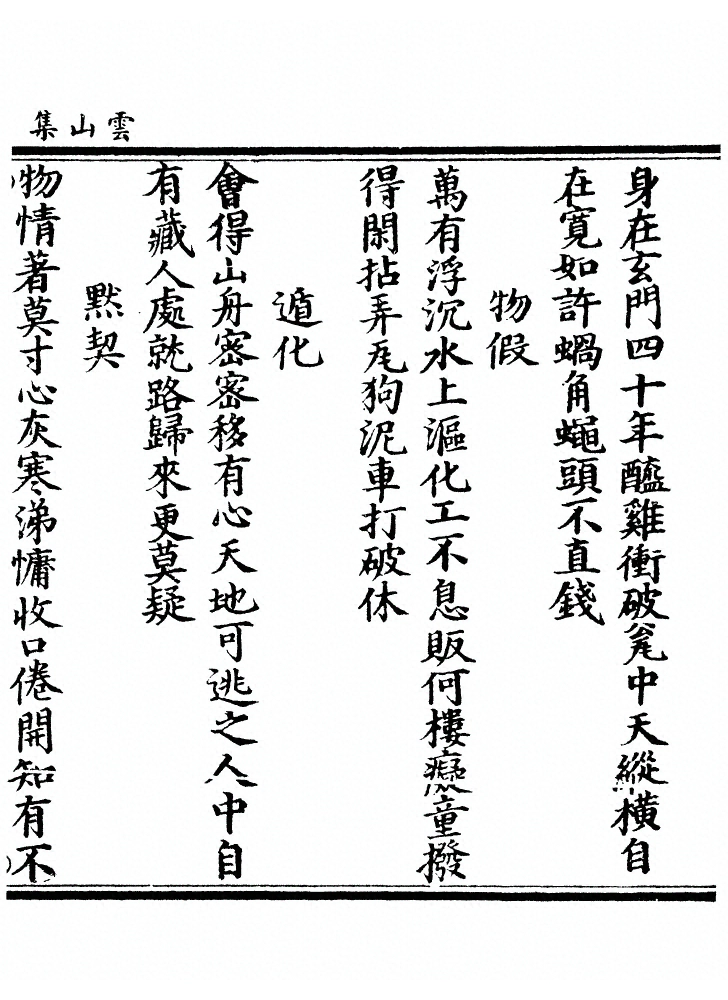 雲山集
身在玄門四十年醯雞衝破瓮中天縱橫自
在寬如許蝸角蠅頭不直錢
物假
萬有浮沉水上漚化工不息販何樓癡童撥
得閑拈弄瓦狗泥車打破休
遁化
會得山舟密密移有心天地可逃之人中自
有藏人處就路歸來更莫疑
默契
物情著莫寸心灰寒涕慵收口倦開知有不